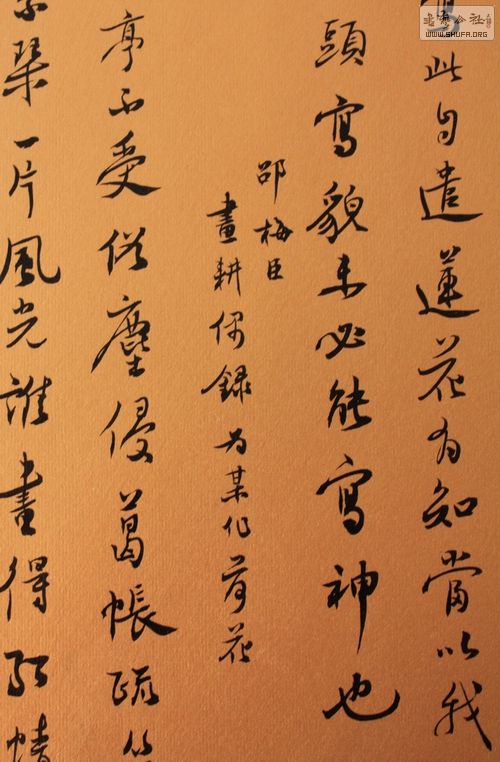 书法公社
WWW.SHUFA.ORG
此自遣蓮花有知當以我
頭寫貌未必能寫神也
邵梅臣
畫耕偶錄 为某作荷花
亭不受俗塵侵葛帳疏
琹一片風光誰畫得紅蜻